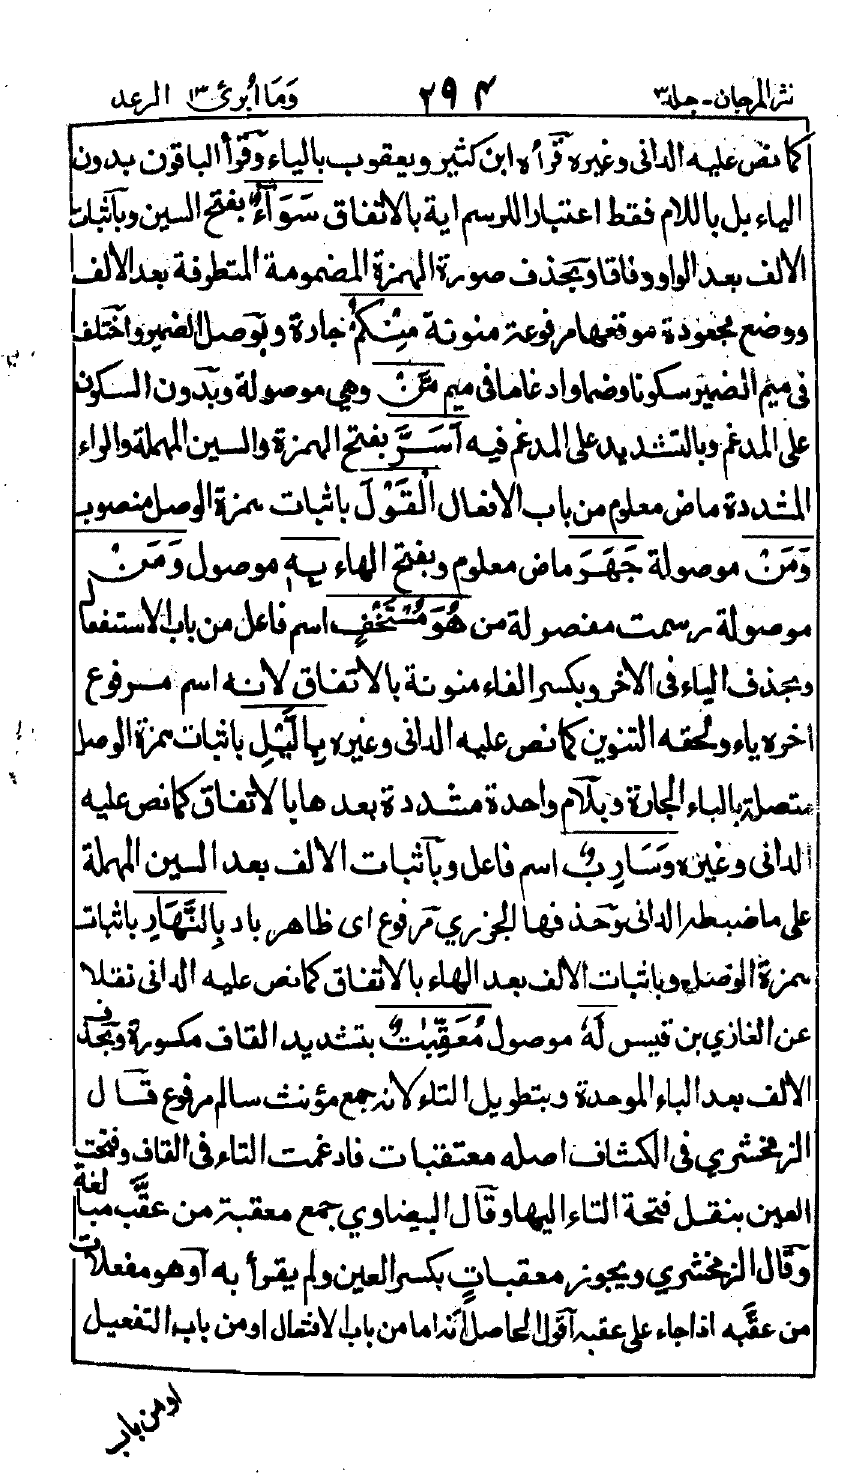 نثر المرجان - جلد ٣ ٢٩٤ وَمَا أُبَرِّئُ ١٣ الرعد
كما نص عليه الدانى وغيره قرأه ابن كثير ويعقوب بالياء وقرأ الباقون بدون
الياء بل باللام فقط اعتبارا للرسم اية بالاتفاق سَوَآءٌ بفتح السين وبآثبات
الالف بعد الواو وفاقا وبحذف صورة الهمزة المضمومة المتطرفة بعد الالف
ووضع مجعودة موقعها مرفوعة منونة مِنْكُمْ جارة وبوصل الضمير واختلف
فى ميم الضمير سكونا وضما وادغامها فى ميم مَّنْ وهي موصولة وبدون السكون
على المدغم وبالتشديد على المدغم فيه اَسَرَّ بفتح الهمزة والسين المهملة والراء
المشددة ماض معلوم من باب الافعال الْقَوْلَ باثبات همزة الوصل منصوب
وَمَنْ موصولة جَهَرَ ماض معلوم وبفتح الهاء بِهٖ موصول وَمَنْ
موصولة رسمت مفصولة من هُوَ مُسْتَخْفٍ اسم فاعل من باب الاستفعال
وبحذف الياء فى الاخر وبكسر الفاء منونة بالاتفاق لانه اسم مرفوع
اخره ياء ولحقه التنوين كما نص عليه الدانى وغيره بِالَّيْلِ باثبات همزة الوصل
متصلة بالباء الجارة وبلام واحدة مشددة بعدها بالاتفاق كما نص عليه
الدانى وغيره وَسَارِبٌ اسم فاعل وبآثبات الالف بعد السين المهملة
على ما ضبطه الدانى وحذفها الجزري مرفوع اى ظاهر باد بِالنَّهَارِ باثبات
همزة الوصل وباثبات الالف بعد الهاء بالاتفاق كما نص عليه الدانى نقلا
عن الغازي بن قيس لَهٗ موصول مُعَقِّبٰتٌ بتشديد القاف مكسورة وبحذف
الالف بعد الباء الموحدة وبتطويل التاء لانه جمع مؤنث سالم مرفوع قال
الزمخشري فى الكشاف اصله معتقبات فادغمت التاء فى القاف وفتحت
العين بنقل فتحة التاء اليها وقال البيضاوي جمع معقبة من عقَّب مبالغة
وقال الزمخشري ويجوز معقبات بكسر العين ولم يقرأ به اوهو مفعلات
من عقَّبه اذا جاء على عقبه اقول الحاصل انه اما من باب الافتعال او من باب التفعيل
او من باب